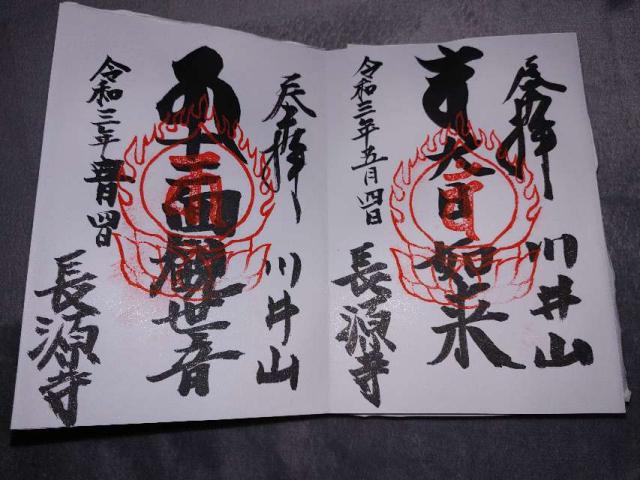 奉拝
川井山
大日如来
令和三年五月四日
長源寺
奉拝
川井山
十一面観世音
令和三年五月四日
長源寺